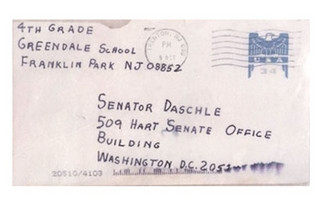 4TH GRADE
GREENDALE SCHOOL
FRANKLIN PARK NJ 08852
PM
USA
34
SENATOR DASCHLE
509 HART SENATE OFFICE
BUILDING
WASHINGTON D.C. 2051
20510/4103